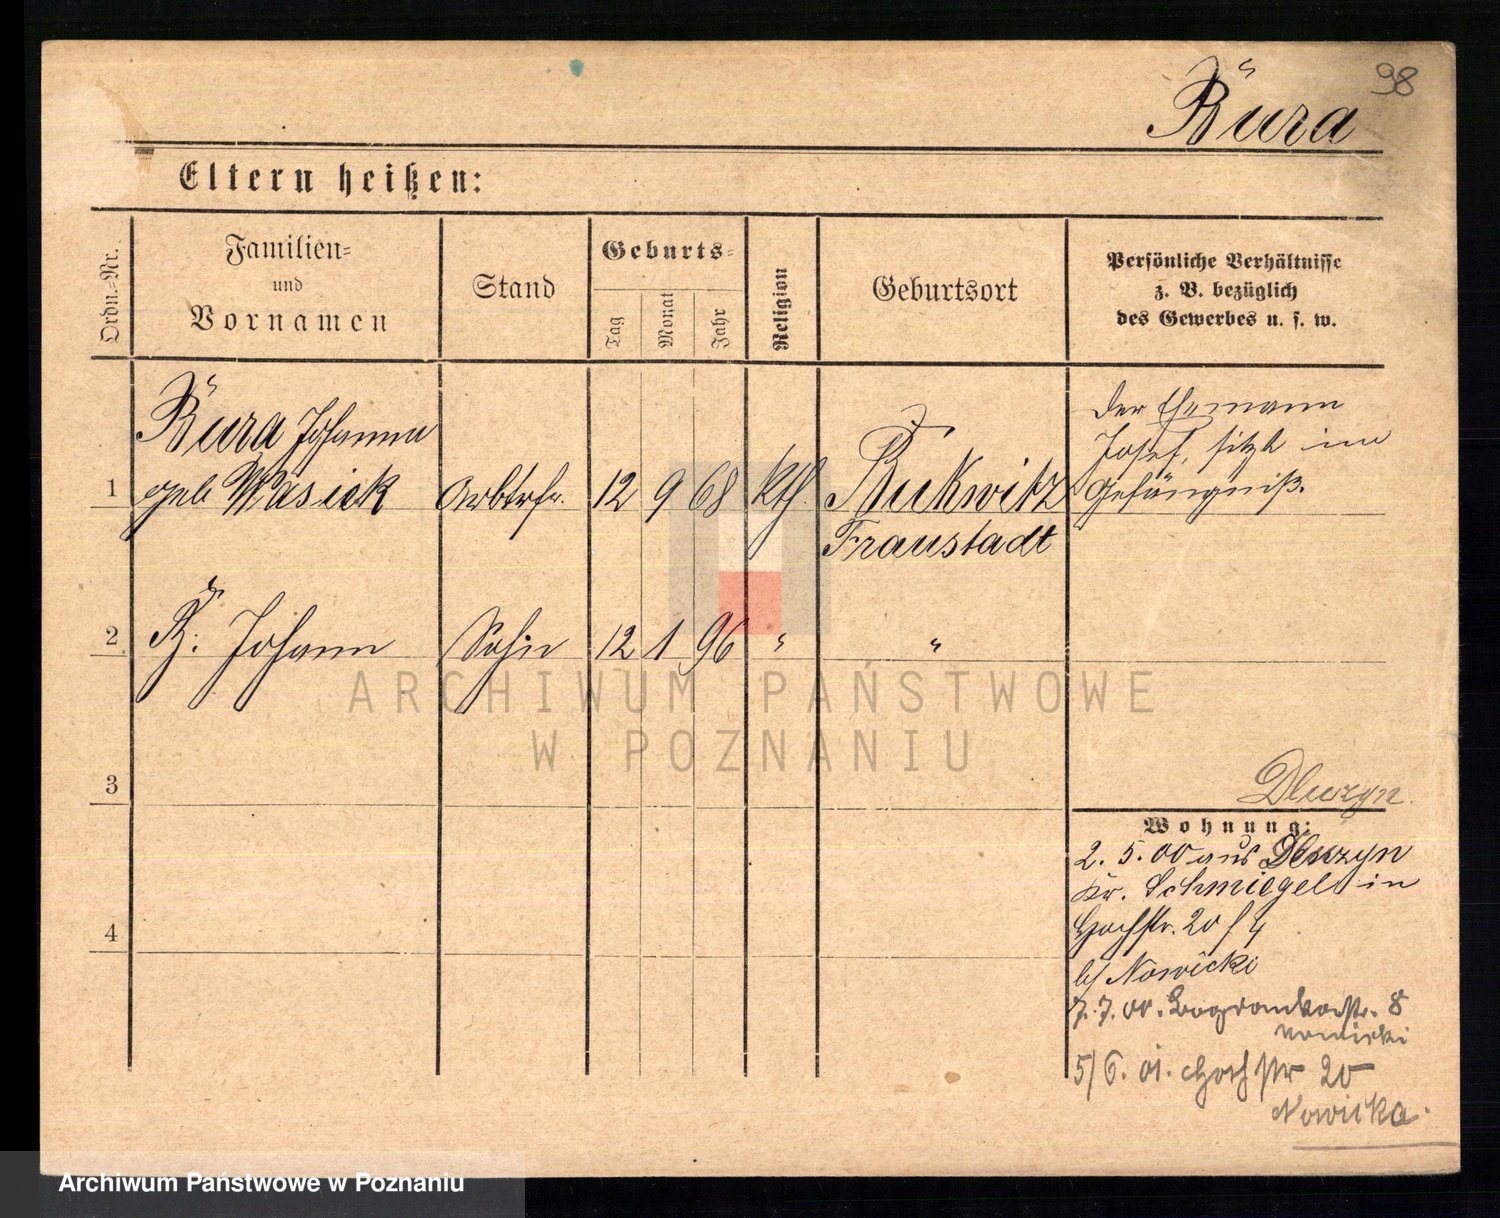 98
Bŭra
Eltern heißen:
Ordn.-Nr.
Familien-
und
Vornamen
Stand
Geburts-
Tag
Monat
Jahr
Religion
Geburtsort
Persönliche Verhältnisse
z. B. bezüglich
des Gewerbes u. s. w.
Bŭra Johanna
der Ehemann
Josef, sitzt im
1 geb Wasiek Arbtrfr. 12 9 68 kth. Bukwitz Gefängniß.
Fraustadt
2 B. Johann Sohn 12 1 96 " "
ARCHIWUM PAŃSTWOWE
W POZNANIU
3
Dluzyn.
Wohnung:
2. 5. 00 aus Dluzyn
Kr. Schmiegel in
Hochstr. 20
b/ Nowicki
4
7. 7. 00. 8
Nowicki
5/6. 01. Hochstr 20
Nowicka.
Archiwum Państwowe w Poznaniu